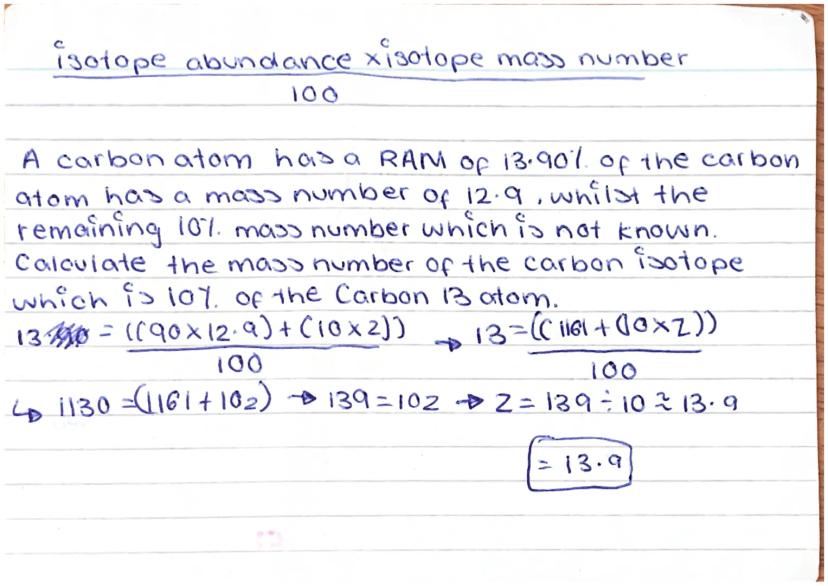 isotope abundance x isotope mass number
100
A carbon atom has a RAM of 13.90% of the carbon
atom has a mass number of 12.9, whilst the
remaining 10% mass number which is not known.
Calculate the mass number of the carbon isotope
which is 10% of the Carbon 13 atom.
13 = ((90 x 12.9) + (10 x z)) → 13 = ((1161 + (10 x z))
100 100
↳ 1130 = (1161 + 10z) → 139 = 10z → z = 139 ÷ 10 ≈ 13.9
= 13.9